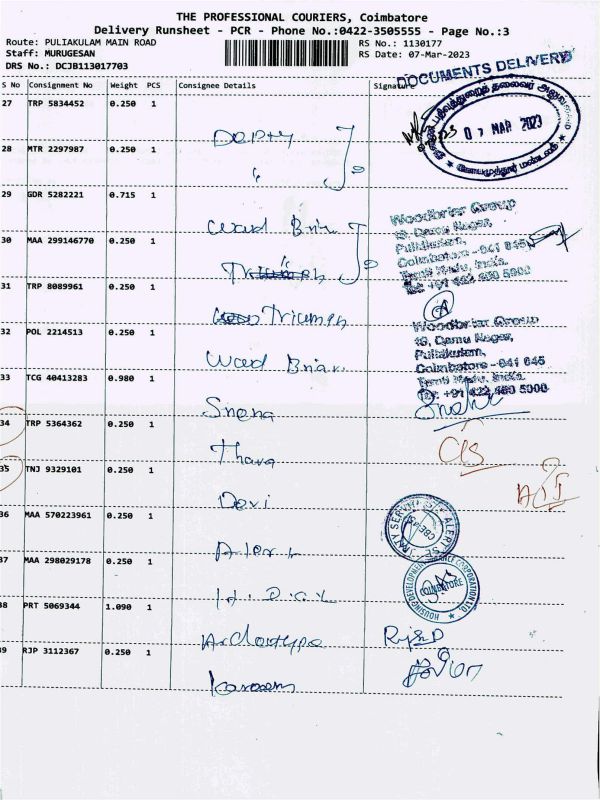 THE PROFESSIONAL COURIERS, Coimbatore
Delivery Runsheet - PCR - Phone No.:0422-3505555 - Page No.:3
Route: PULIAKULAM MAIN ROAD RS No.: 1130177
Staff: MURUGESAN RS Date: 07-Mar-2023
DRS No.: DCJB113017703
DOCUMENTS DELIVERY
S No Consignment No Weight PCS Consignee Details Signature
27 TRP 5834452 0.250 1
07 MAR 2023
Depty
28 MTR 2297987 0.250 1
"
29 GDR 5282221 0.715 1
Wood Briar
Woodbriar Group
19, Damu Nagar,
Puliakulam,
Coimbatore - 641 045
Tamil Nadu, India.
Tel: +91 422 460 5000
30 MAA 299146770 0.250 1
"
31 TRP 8089961 0.250 1
Triumph
32 POL 2214513 0.250 1
Wood Briar
Woodbriar Group
19, Damu Nagar,
Puliakulam,
Coimbatore - 641 045
Tamil Nadu, India.
Tel: +91 422 460 5000
33 TCG 40413283 0.980 1
Sneha
34 TRP 5364362 0.250 1
Thara
35 TNJ 9329101 0.250 1
Devi
36 MAA 570223961 0.250 1
Alert
37 MAA 298029178 0.250 1
HOUSING DEVELOPMENT FINANCE CORPORATION LTD.
COIMBATORE
38 PRT 5069344 1.090 1
Archetype
39 RJP 3112367 0.250 1
Kareem